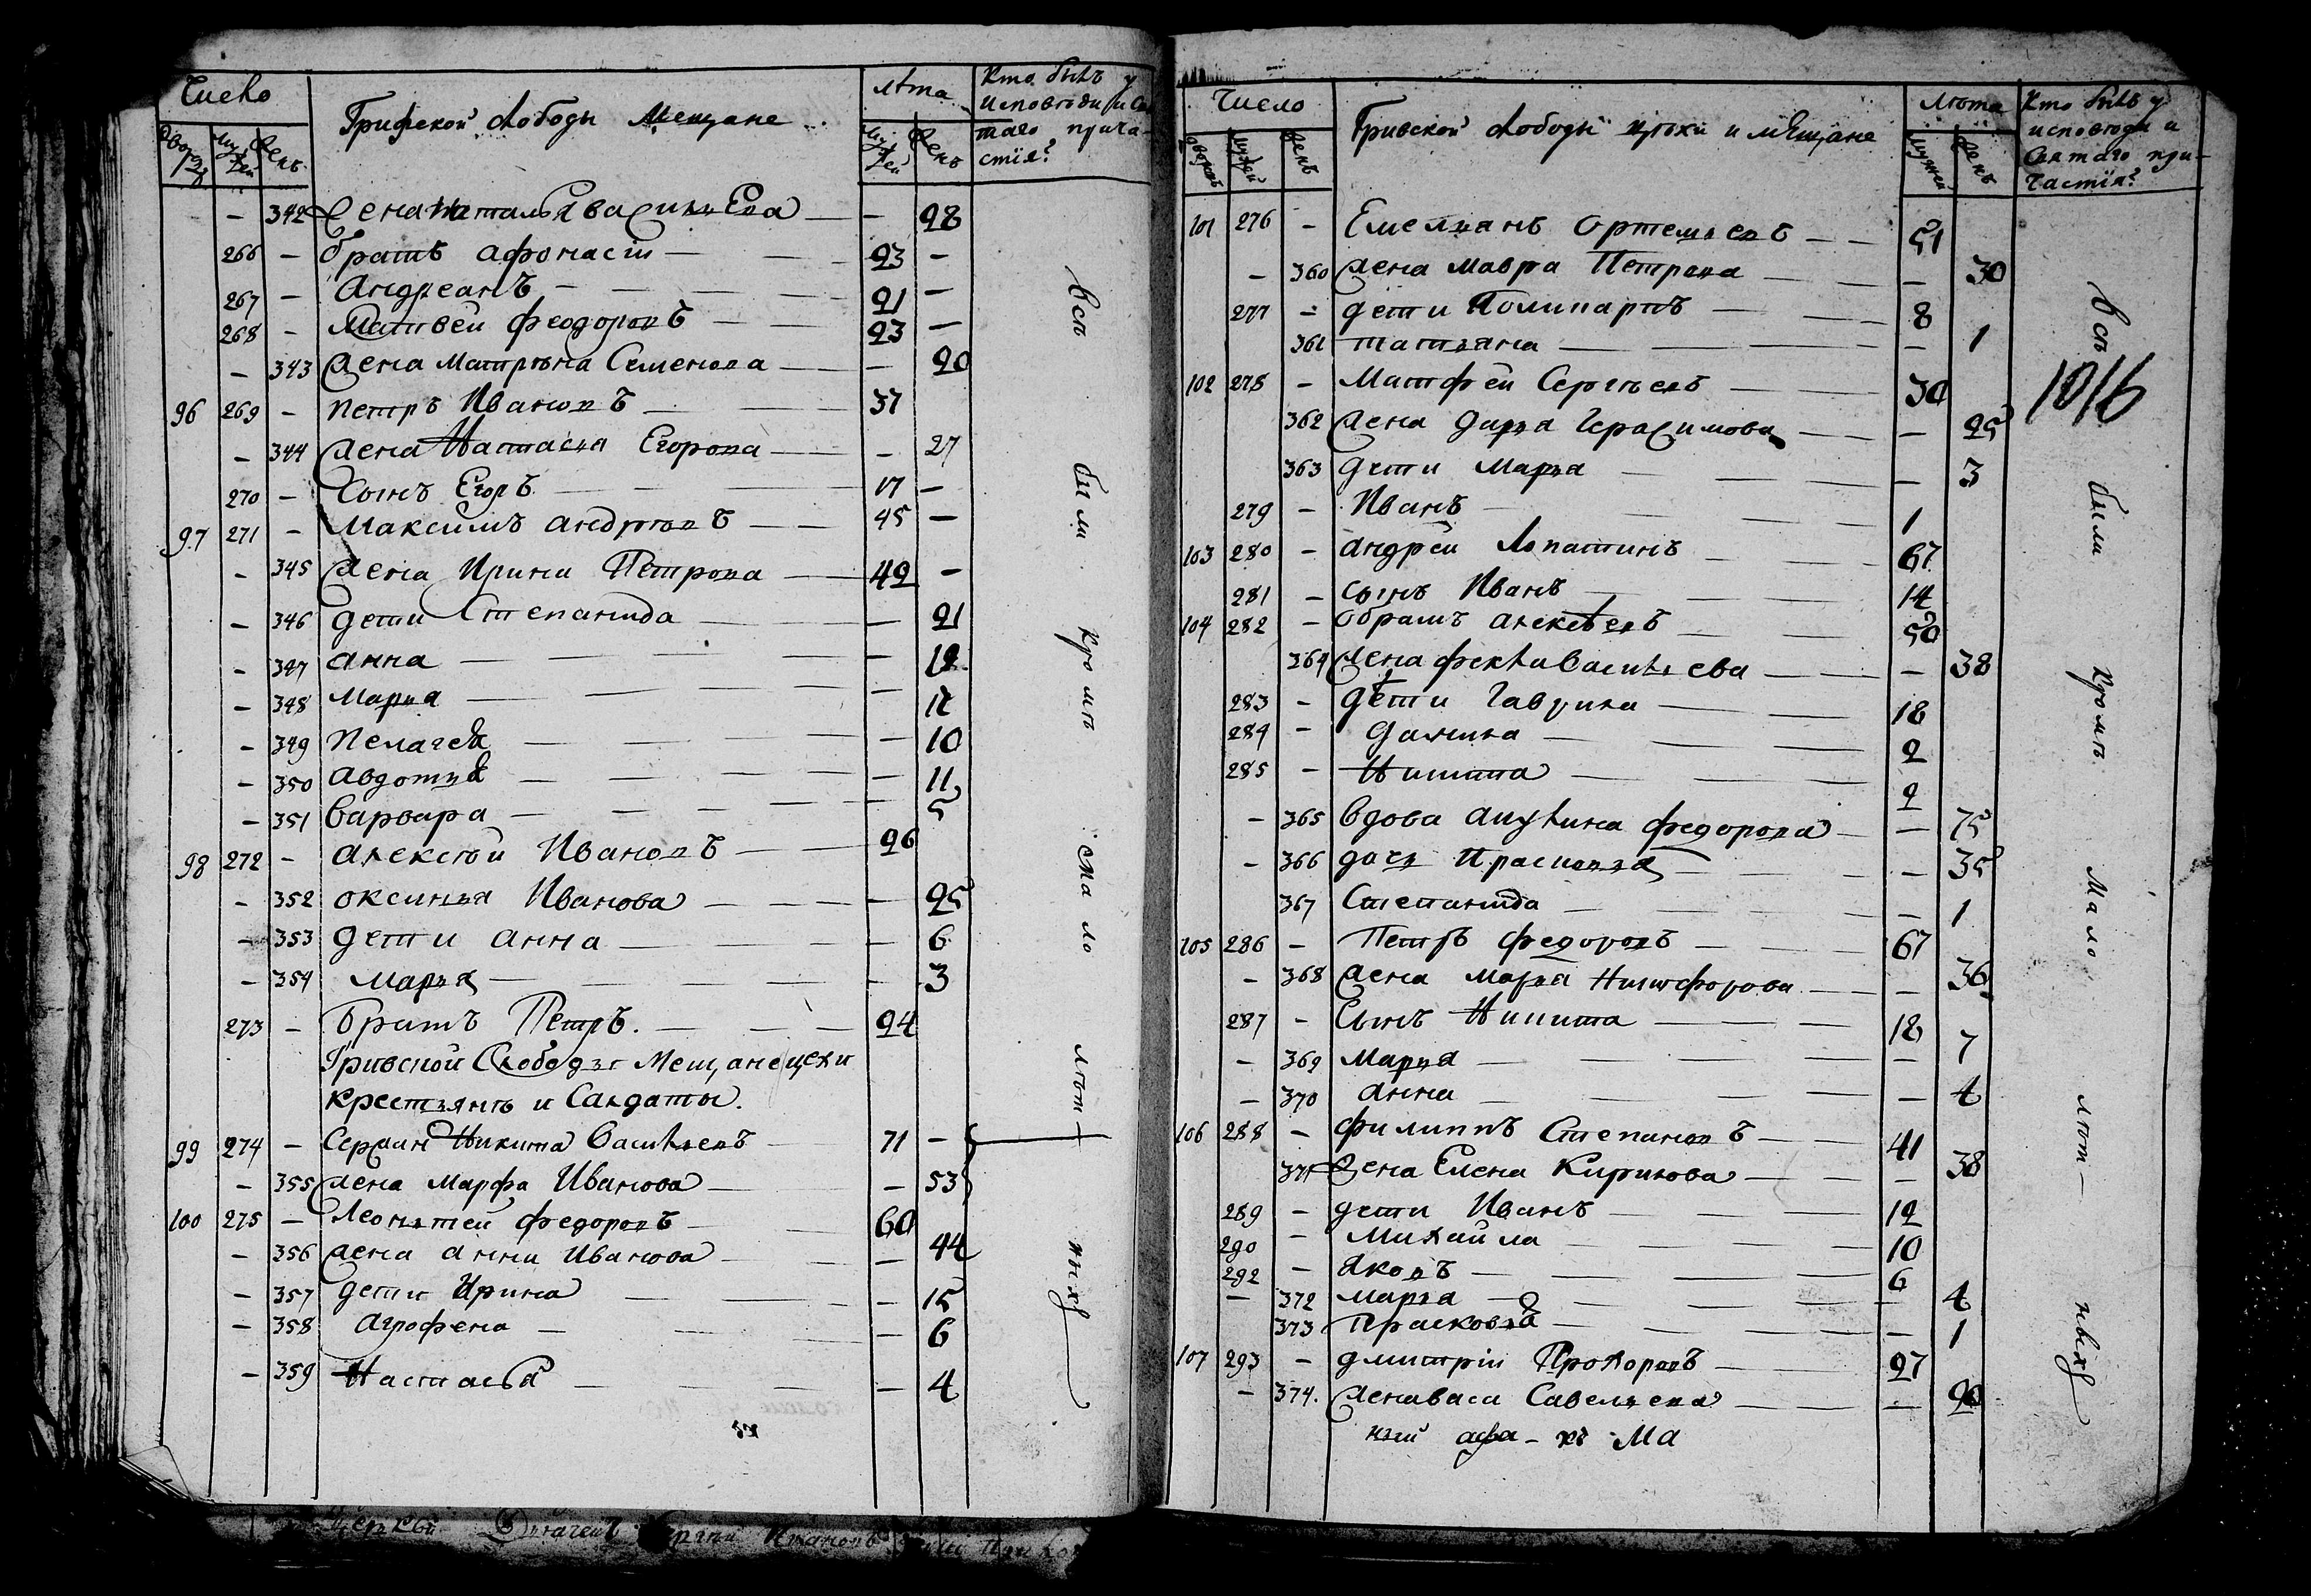 Число
Грифской слободы Мещане
лѣта
Кто былъ у
исповѣди и свя
таго прича-
стїя?
дворовъ
мужей
женъ
мужей
женъ
— 342 жена Наталья Васильева — — 28
266 — братъ Афонасїи — 23 —
267 — Андреанъ — 21 —
268 — Матвей Феодоровъ — 23 —
— 343 жена Матрѣна Семенова — — 20
96 269 — Петръ Ивановъ — 37
— 344 жена Настасья Егорова — — 27
270 — сынъ Егоръ — 17 —
97 271 — Максимъ Андрѣевъ — 45 —
— 345 жена Ирина Петрова — 42 —
— 346 дети Степанида — — 21
— 347 Анна — — 12
— 348 Марья — — 12
— 349 Пелагея — — 10
— 350 Авдотья — — 11
— 351 Варвара — — 5
98 272 — Алексѣй Ивановъ — 26
— 352 Оксинья Иванова — — 25
— 353 дети Анна — — 6
— 354 Марья — — 3
273 — братъ Петръ. — 24
Гривской Слободы Мещане цехи
крестьянѣ и Салдаты.
99 274 — Никита Васильевъ 71 —
— 355 жена Марфа Иванова — — 53
100 275 — Леонтей Федоровъ — 60
— 356 жена Анна Иванова — — 44
— 357 дети Ирина — — 15
— 358 Агрофена — — 6
— 359 Настасья — — 4
всѣ были кромѣ мало лѣт ныхъ
Число
Гривской слободы цехи и мѣщане
лѣта
Кто былъ у
исповѣди и
святаго при-
частїя?
дворовъ
мужей
женъ
мужей
женъ
101 276 — Емелианъ Ортемьевъ — 51
— 360 жена Мавра Петрова — — 30
277 — дети Поликарпъ — 8
361 Татьяна — — 1
102 278 — Матфей Сергѣевъ — 30
362 жена Дарья Герасимова — — 25
363 дети Марья — — 3
279 — Иванъ — 1
103 280 — Андрей Лопатинъ — 67
281 — сынъ Иванъ — 14
104 282 — Обрамъ Алексѣевъ — 50
364 жена Фекла Васильева — — 38
283 — дѣти Гаврила — 18
284 — Данила — 2
285 — Никита — 2
— 365 вдова Акулина Федорова — — 75
— 366 дочь Прасковья — — 35
367 Степанида — — 1
105 286 — Петръ Федоровъ — 67
— 368 жена Марья Никифорова — — 36
287 — сынъ Никита — 18
— 369 Марья — — 7
— 370 Анна — — 4
106 288 — Филиппъ Степановъ — 41
371 жена Елена Кирилова — — 38
289 — дети Иванъ — 12
290 — Михайла — 10
292 — Яковъ — 6
— 372 Марья — — 4
373 Прасковья — — 1
107 293 — Дмитрїи Прохоровъ — 27
— 374. жена Васа Савельева — — 20
кїй афа- къ Ма
всѣ были кромѣ мало лѣт— ныхъ
1016
Церкви Дьячекъ Ивановъ